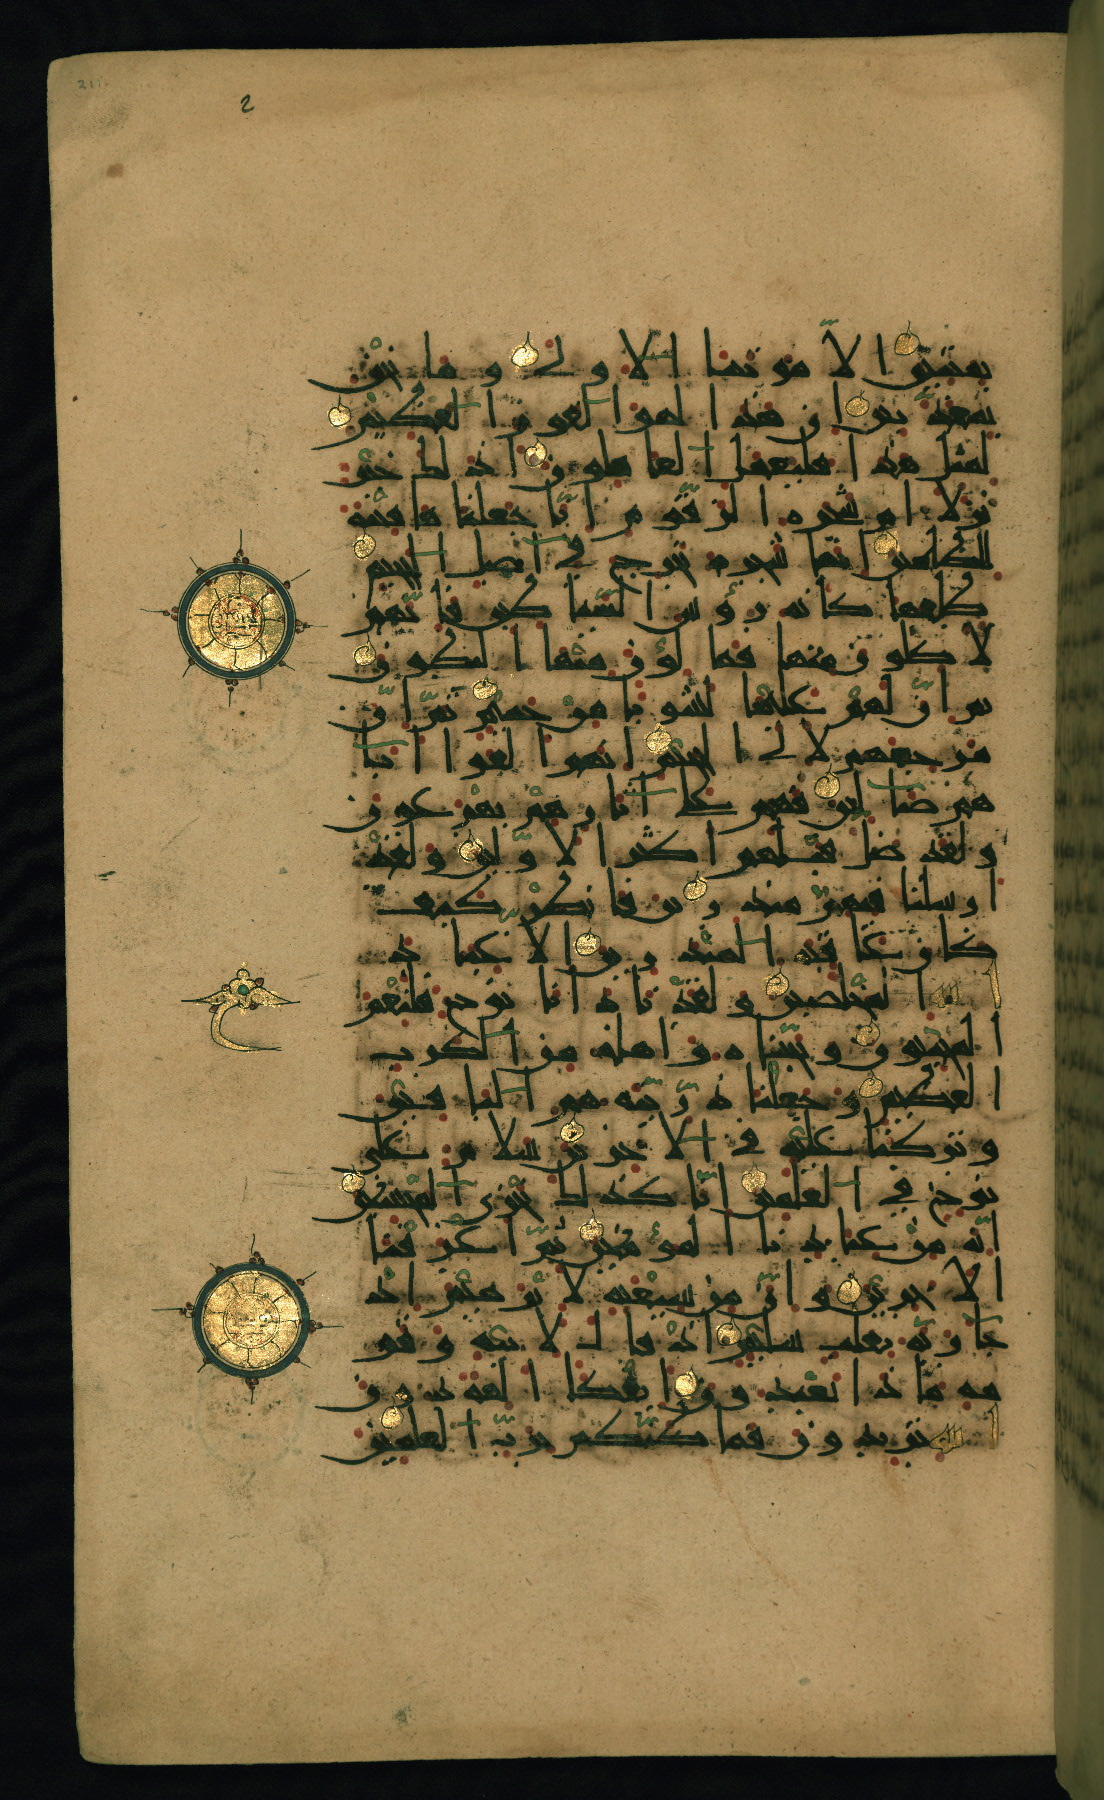 211
2
بميتين الا موتتنا الاولى وما نحن
بمعذبين ان هذا لهو الفوز العظيم
لمثل هذا فليعمل العاملون اذلك خير
نزلا ام شجرة الزقوم انا جعلناها فتنة
للظلمين انها شجرة تخرج في اصل الجحيم
طلعها كانه رؤس الشيا طين فانهم
لاكلون منها فمالؤن منها البطون
ثم ان لهم عليها لشوبا من حميم ثم ان
مرجعهم لالى الجحيم انهم الفوا ابا
هم ضالين فهم على اثارهم يهرعون
ولقد ضل قبلهم اكثر الاولين ولقد
ارسلنا فيهم منذرين فانظر كيف
كان عاقبة المنذرين الا عباد
الله المخلصين ولقد نادانا نوح فلنعم
المجيبون ونجيناه واهله من الكرب
العظيم وجعلنا ذريته هم الباقين
وتركنا عليه في الاخرين سلام على
نوح في العلمين انا كذلك نجزي المحسنين
انه من عبادنا المؤمنين ثم اغرقنا
الاخرين وان من شيعته لابرهيم اذ
جا ربه بقلب سليم اذ قال لابيه وقو
مه ماذا تعبدون ائفكا الهة دون
الله تريدون فما ظنكم برب العلمين